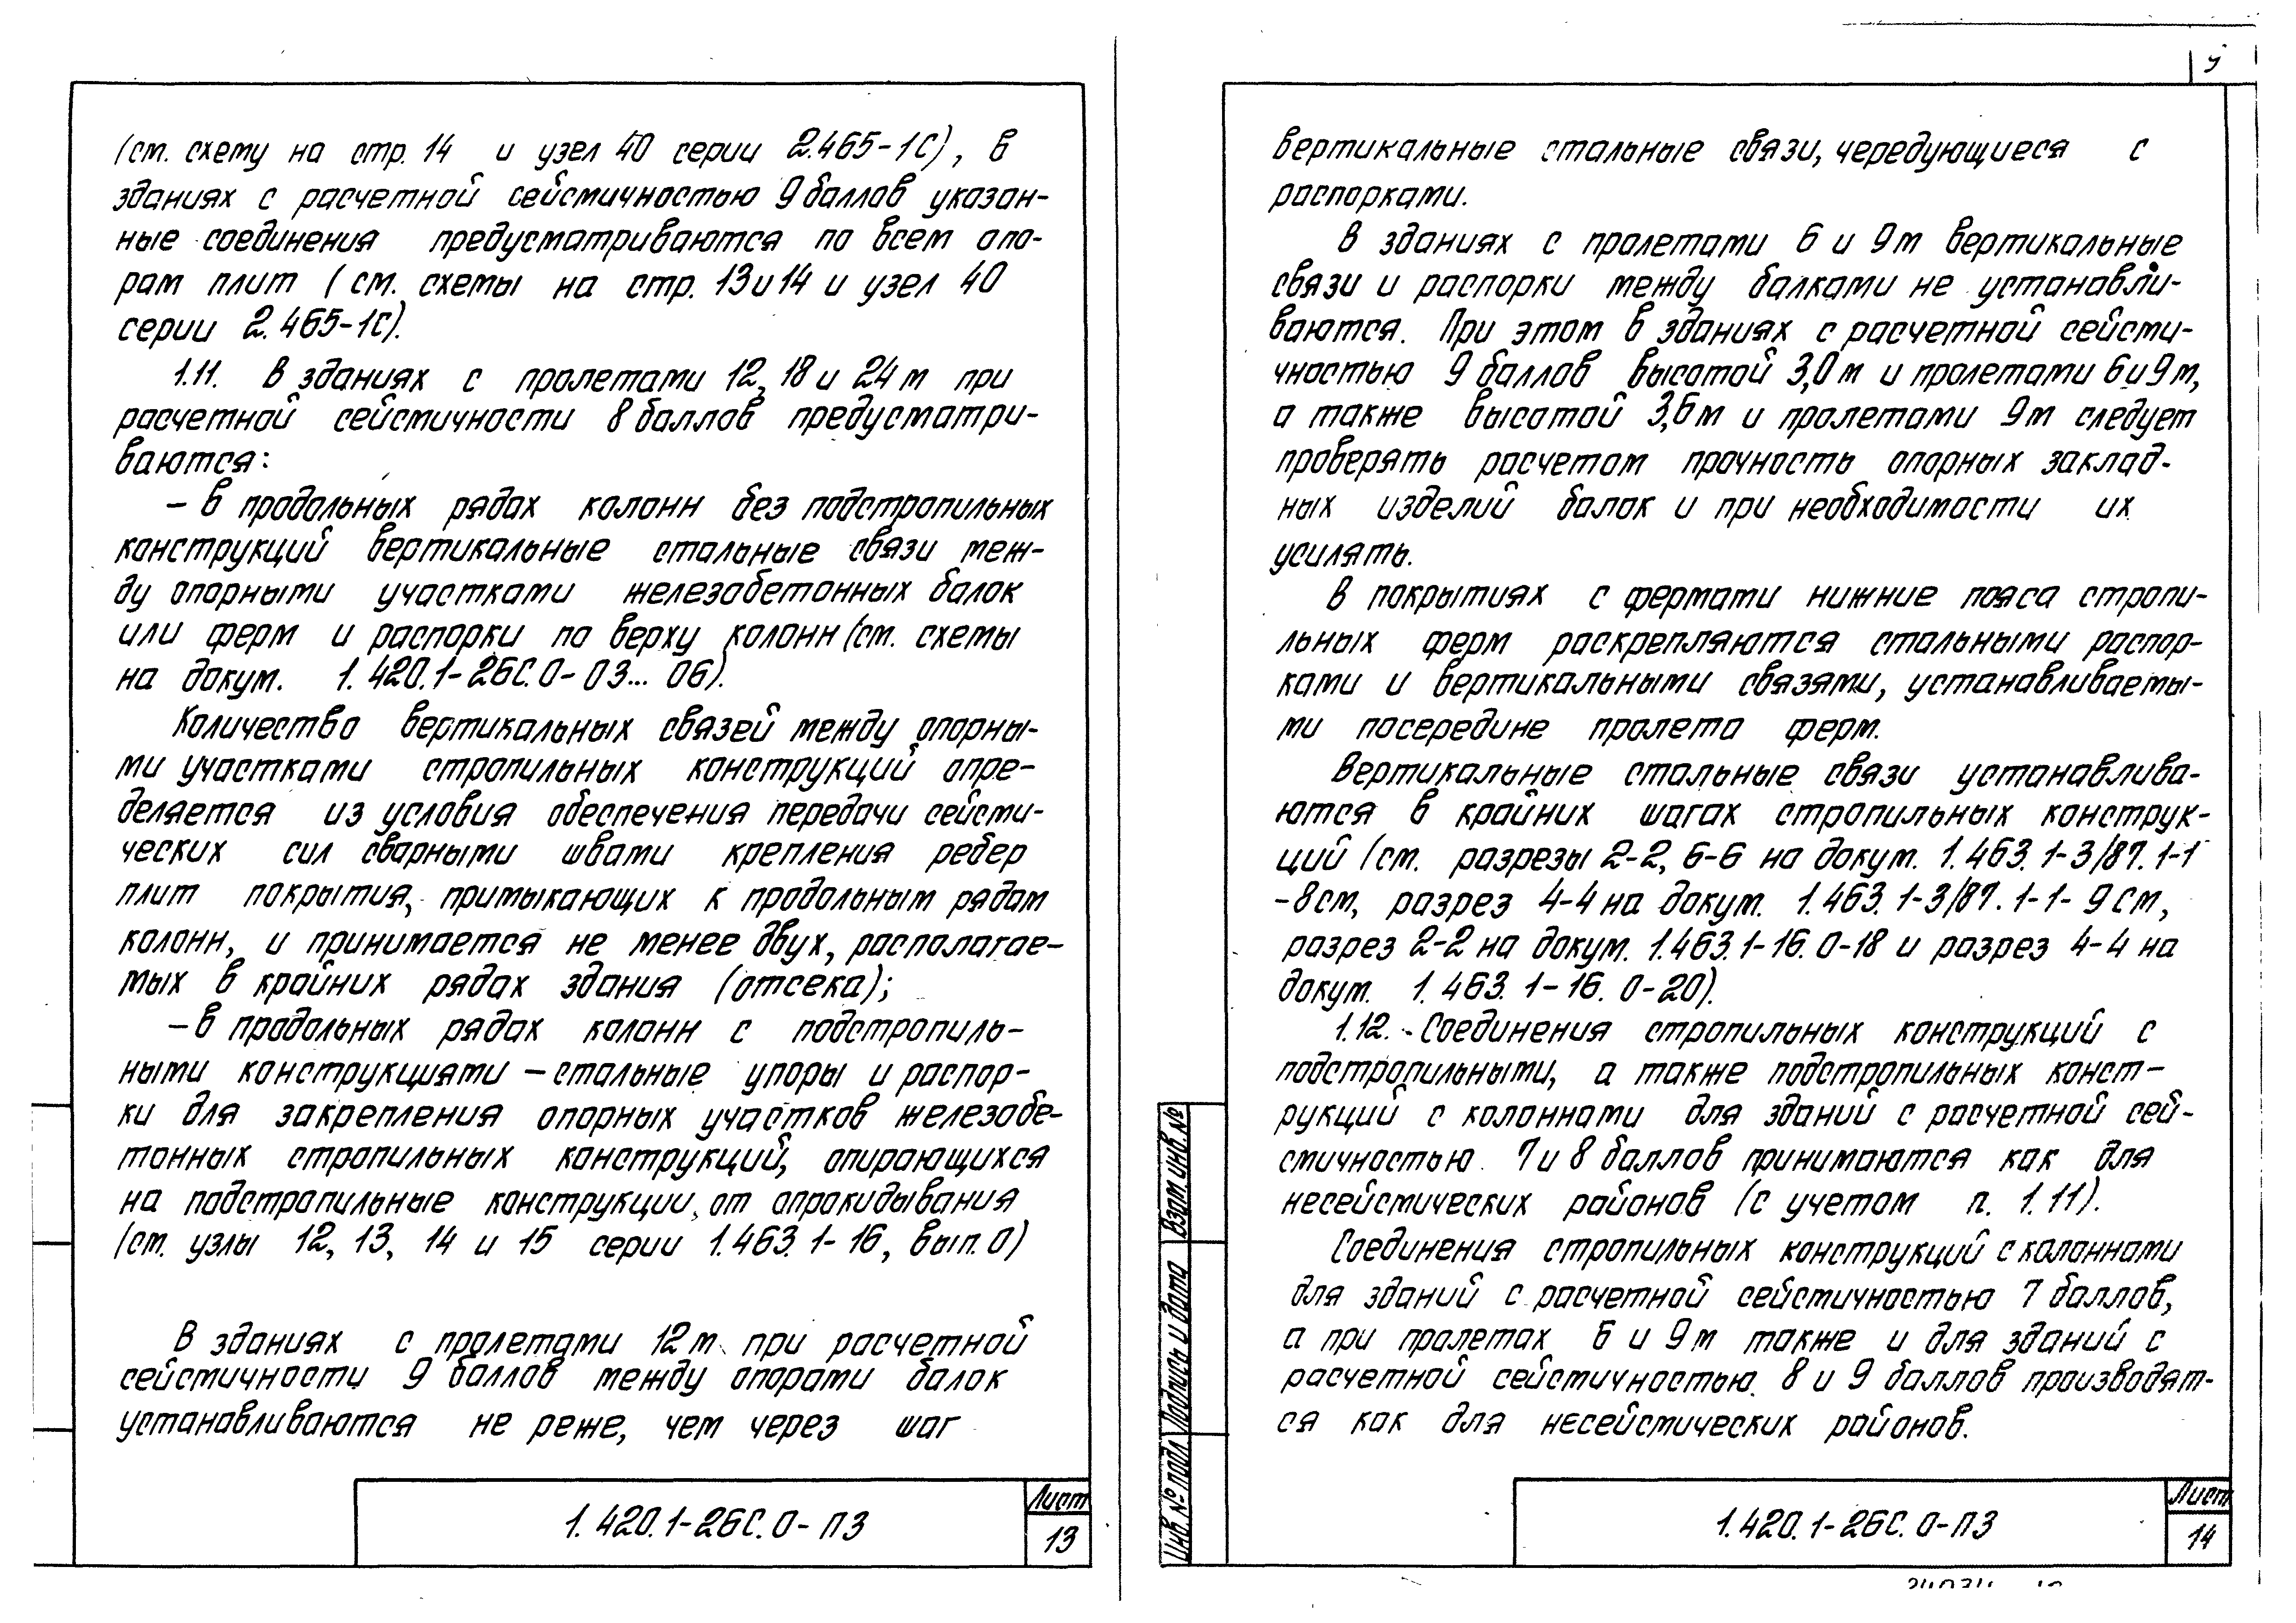 (см. схему на стр. 14 и узел 40 серии 2.465-1С), в
зданиях с расчетной сейсмичностью 9 баллов указан-
ные соединения предусматриваются по всем опо-
рам плит (см. схемы на стр. 13 и 14 и узел 40
серии 2.465-1С).
1.11. В зданиях с пролетами 12, 18 и 24 м при
расчетной сейсмичности 8 баллов предусматри-
ваются:
- в продольных рядах колонн без подстропильных
конструкций вертикальные стальные связи меж-
ду опорными участками железобетонных балок
или ферм и распорки по верху колонн (см. схемы
на докум. 1.420.1-26С.0-03... 06).
Количество вертикальных связей между опорны-
ми участками стропильных конструкций опре-
деляется из условия обеспечения передачи сейсми-
ческих сил сварными швами крепления ребер
плит покрытия, примыкающих к продольным рядам
колонн, и принимается не менее двух, располагае-
мых в крайних рядах здания (отсека);
- в продольных рядах колонн с подстропиль-
ными конструкциями - стальные упоры и распор-
ки для закрепления опорных участков железобе-
тонных стропильных конструкций, опирающихся
на подстропильные конструкции, от опрокидывания
(см. узлы 12, 13, 14 и 15 серии 1.463.1-16, вып. 0)
В зданиях с пролетами 12 м при расчетной
сейсмичности 9 баллов между опорами балок
устанавливаются не реже, чем через шаг
1.420.1-26С.0-ПЗ
Лист
13
вертикальные стальные связи, чередующиеся с
распорками.
В зданиях с пролетами 6 и 9 м вертикальные
связи и распорки между балками не устанавли-
ваются. При этом в зданиях с расчетной сейсми-
чностью 9 баллов высотой 3,0 м и пролетами 6 и 9 м,
а также высотой 3,6 м и пролетами 9 м следует
проверять расчетом прочность опорных заклад-
ных изделий балок и при необходимости их
усилять.
В покрытиях с фермами нижние пояса стропи-
льных ферм раскрепляются стальными распор-
ками и вертикальными связями, устанавливаемы-
ми посередине пролета ферм.
Вертикальные стальные связи устанавлива-
ются в крайних шагах стропильных конструк-
ций (см. разрезы 2-2, 6-6 на докум. 1.463.1-3/87.1-1
-8см, разрез 4-4 на докум. 1.463.1-3/87.1-1-9см,
разрез 2-2 на докум. 1.463.1-16.0-18 и разрез 4-4 на
докум. 1.463.1-16.0-20).
1.12. Соединения стропильных конструкций с
подстропильными, а также подстропильных конст-
рукций с колоннами для зданий с расчетной сей-
смичностью 7 и 8 баллов принимаются как для
несейсмических районов (с учетом п. 1.11).
Соединения стропильных конструкций с колоннами
для зданий с расчетной сейсмичностью 7 баллов,
а при пролетах 6 и 9 м также и для зданий с
расчетной сейсмичностью 8 и 9 баллов производят-
ся как для несейсмических районов.
Взам. инв. №
Подпись и дата
Инв. № подл
1.420.1-26С.0-ПЗ
Лист
14